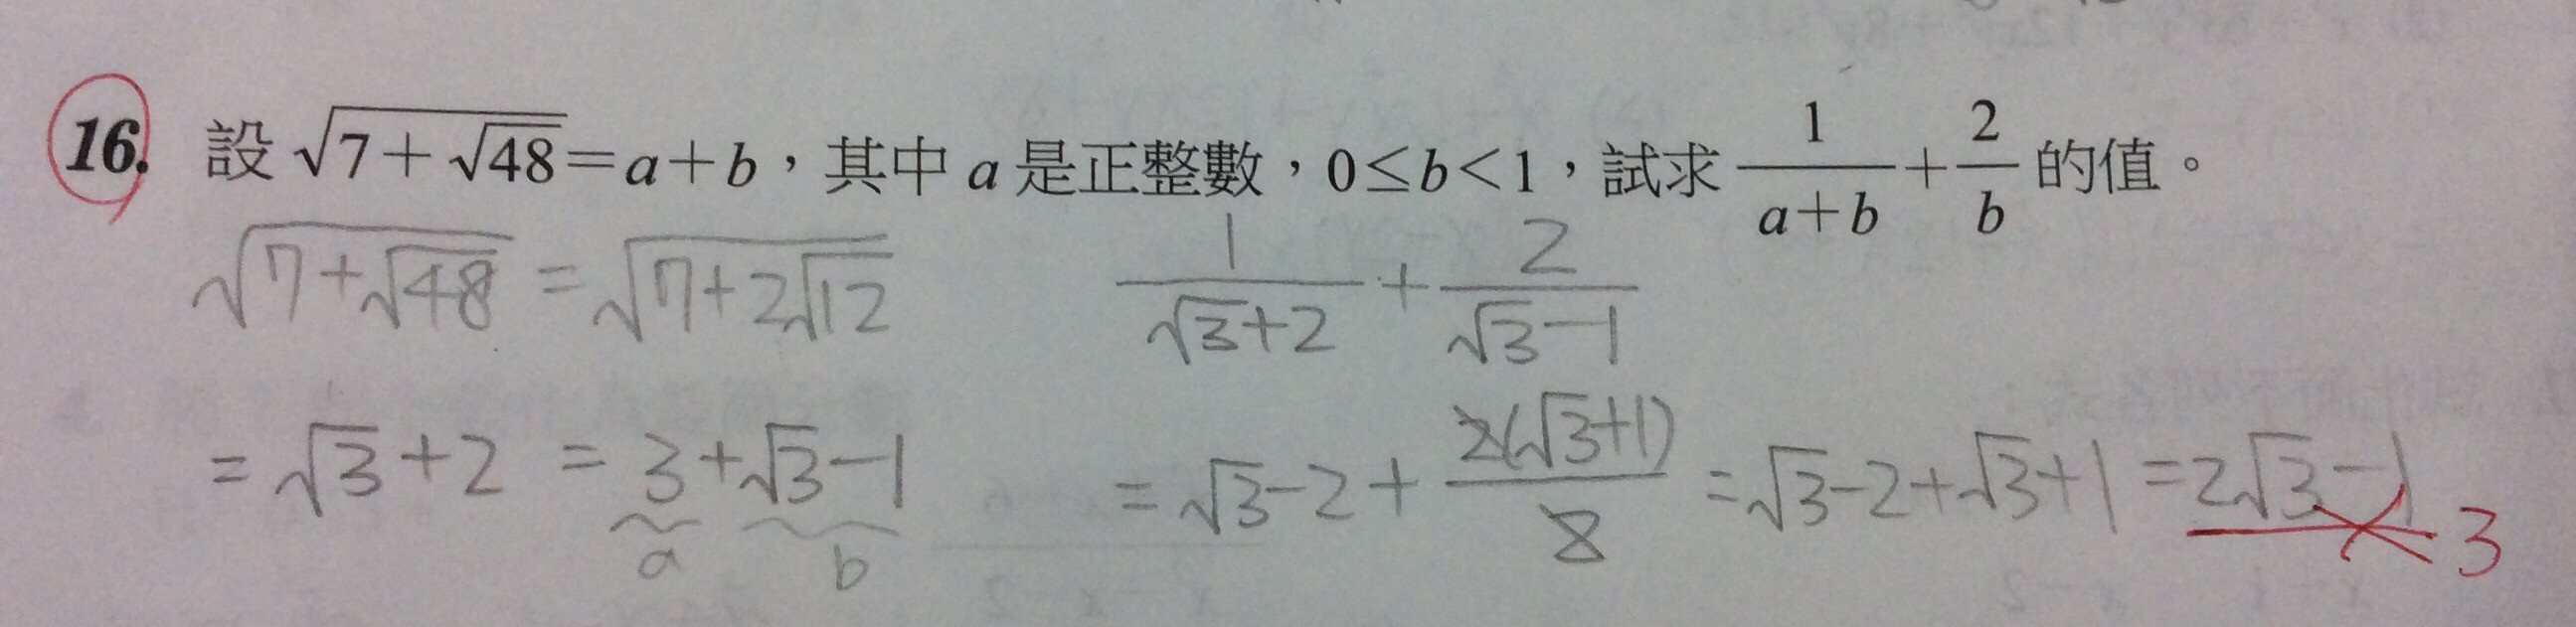 16. 設 √(7+√48)=a+b，其中 a 是正整數，0≤b<1，試求 1/(a+b)+2/b 的值。
√(7+√48) = √(7+2√12)
= √3+2 = 3+√3-1
a b
1/(√3+2) + 2/(√3-1)
= √3-2+ 2(√3+1)/2 = √3-2+√3+1 = 2√3-1
3